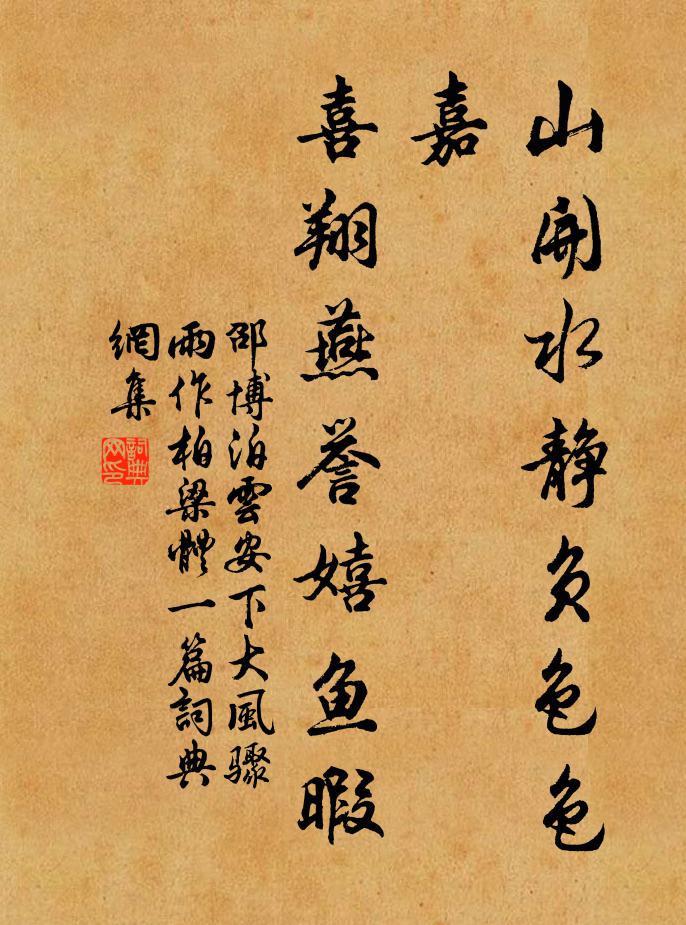 山開水静负色色
嘉
喜翔燕誉嬉鱼暇
邵博泊雲安下大風驟
雨作柏梁體一篇詞典
網集
詞典
网印